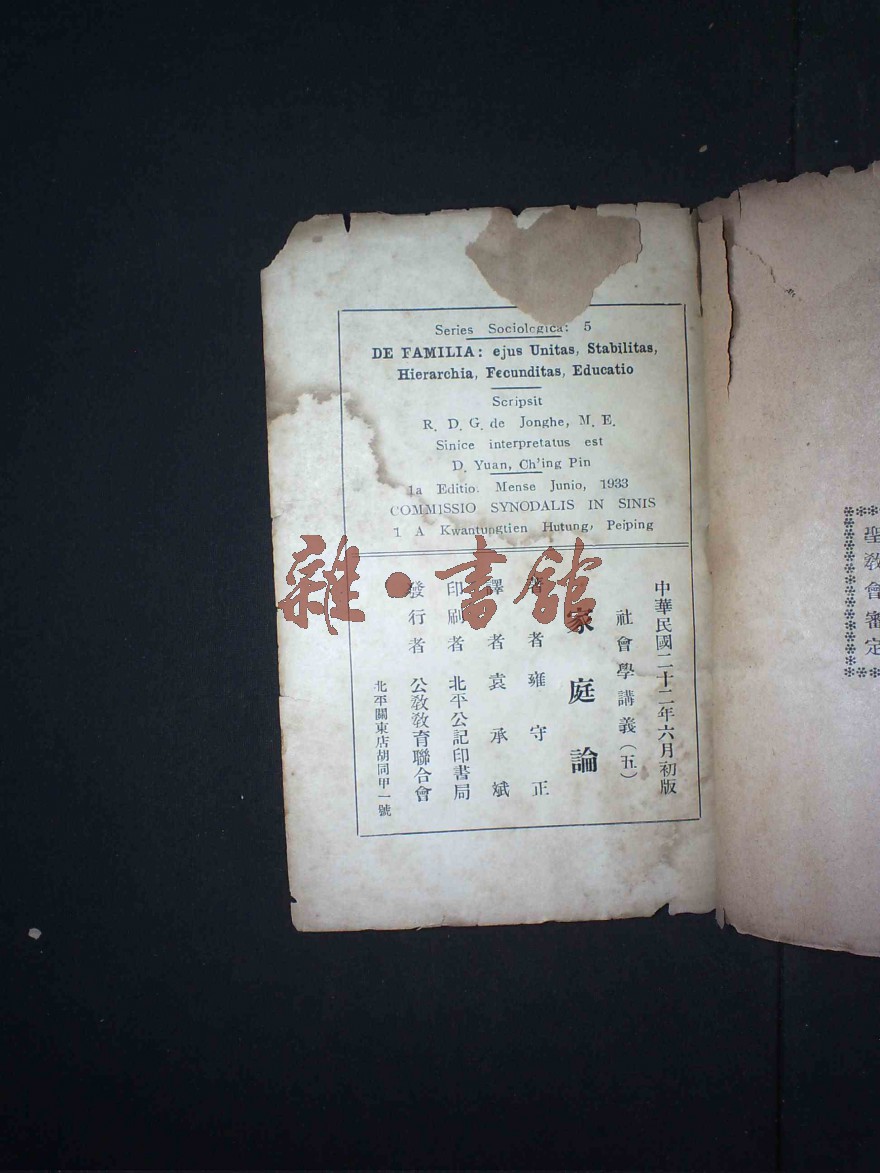 Series Sociologica: 5
DE FAMILIA: ejus Unitas, Stabilitas,
Hierarchia, Fecunditas, Educatio
Scripsit
R. D. G. de Jonghe, M. E.
Sinice interpretatus est
D. Yuan, Ch'ing Pin
1a Editio. Mense Junio, 1933
COMMISSIO SYNODALIS IN SINIS
1 A Kwantungtien Hutung, Peiping
中華民國二十二年六月初版
社會學講義(五)
家庭論
著者 雍守正
譯者 袁承斌
印刷者 北平公記印書局
發行者 公敎敎育聯合會
北平關東店胡同甲一號
聖敎會審定
雜·書館